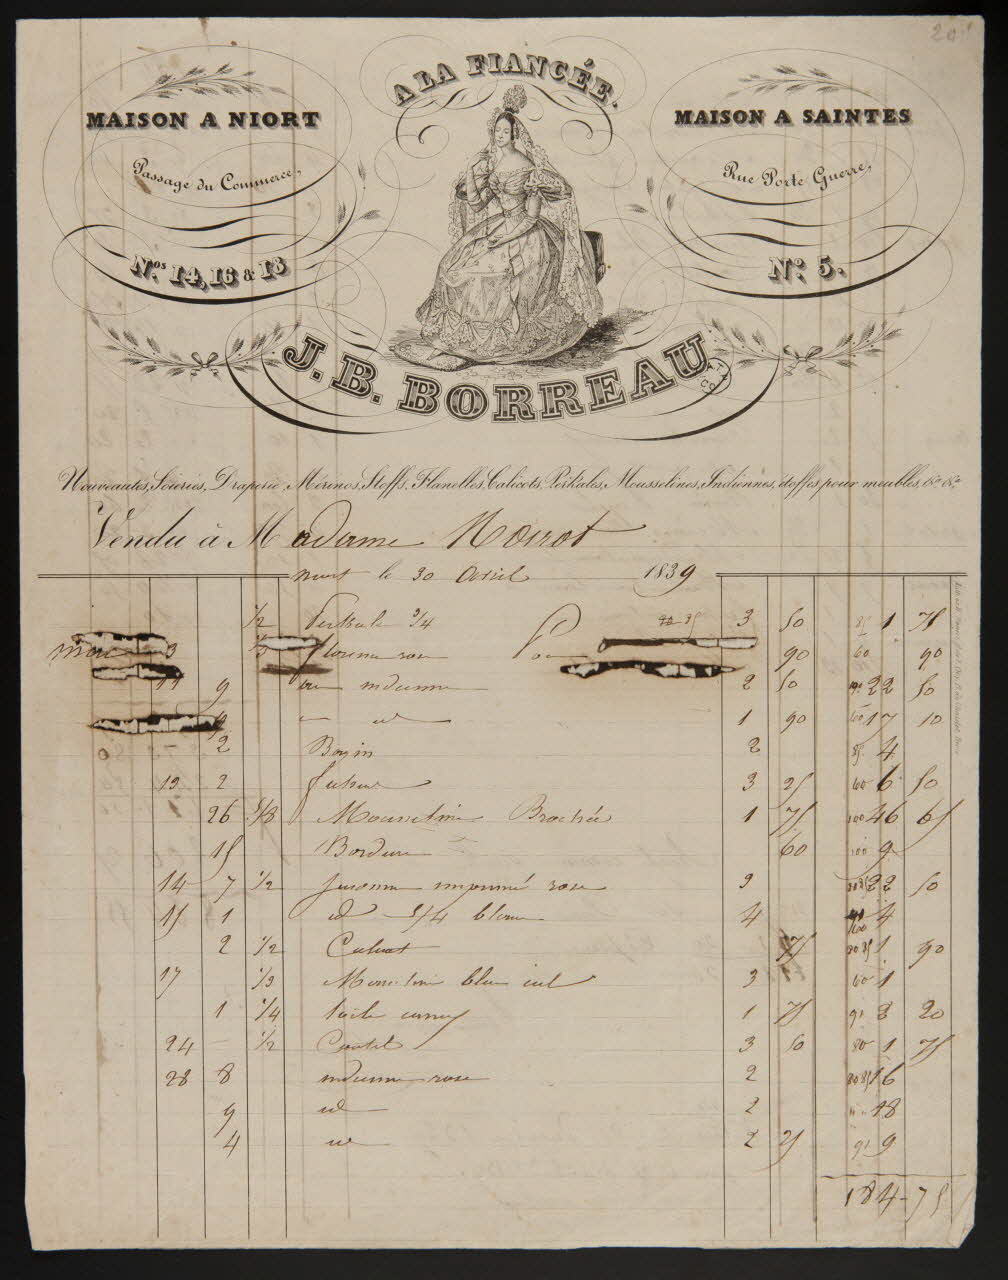 A LA FIANCÉE.
MAISON A NIORT
Passage du Commerce,
Nos 14, 16 & 18
MAISON A SAINTES
Rue Porte Guerre,
No 5.
J. B. BORREAU
Nouveautés, Soieries, Draperie, Mérinos, Stoffs, Flanelles, Calicots, Perkales, Mousselines, Indiennes, étoffes pour meubles, &a &a
Vendu à Madame Noirot
niort le 30 Avril 1839
1/2 Perkale 3/4 3 50 1 75
90 60 90
9 indienne 2 50 22 50
id 1 90 17 10
2 2 4
19 2 3 25 6 50
26 5/8 Mousseline Brochée 1 75 46 65
15 Bordure 60 9
14 7 1/2 imprimé rose 3 22 50
15 1 id 5/4 4 4
2 1/2 Calicot 75 1 90
17 1/3 Mousseline bleu ciel 3 60 1
1 1/4 toile 1 75 2 20
24 1/2 3 50 80 1 75
28 8 indienne rose 2 16
9 id 2 18
4 id 2 25 9
184-75